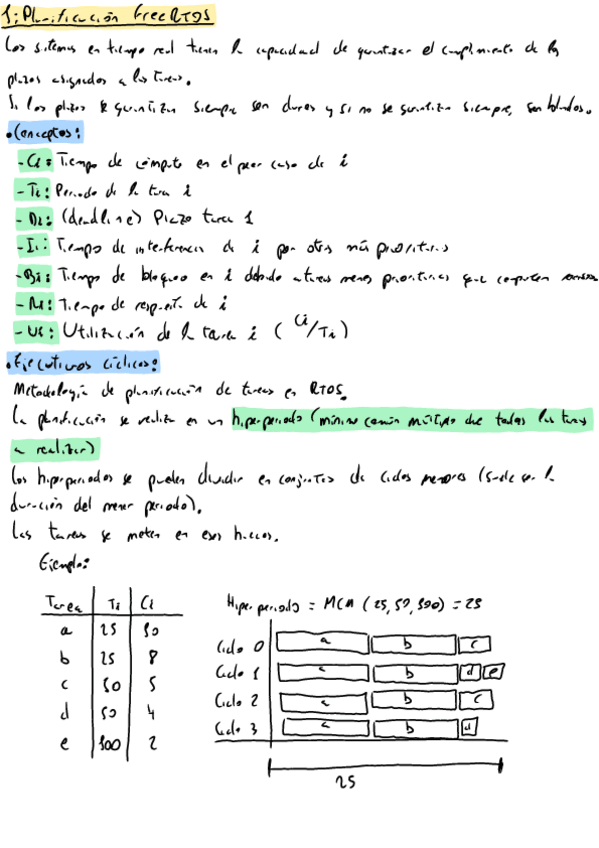 1: Planificación FreeRTOS
Los sistemas en tiempo real tienen la capacidad de garantizar el cumplimiento de los
plazos asignados a las tareas.
Si los plazos se garantizan siempre son duros y si no se garantizan siempre, son blandos.
• Conceptos:
- Ci: Tiempo de cómputo en el peor caso de i
- Ti: Periodo de la tarea i
- Di: (deadline) Plazo tarea 1
- Ii: Tiempo de interferencia de i por otras más prioritarias
- Bi: Tiempo de bloqueo en i debido a tareas menos prioritarias que comparten
- Ri: Tiempo de respuesta de i
- Ui: Utilización de la tarea i ( Ci/Ti )
• Ejecutivos cíclicos:
Metodología de planificación de tareas en RTOS.
La planificación se realiza en un hiperperiodo (mínimo común múltiplo de todas las tareas
a realizar)
Los hiperperiodos se pueden dividir en conjuntos de ciclos menores (suele ser la
duración del menor periodo).
Las tareas se meten en esos huecos.
Ejemplo:
Tarea Ti Ci
a 25 10
b 25 8
c 50 5
d 50 4
e 100 2
Hiperperiodo = MCM (25, 50, 100) = 25
Ciclo 0 a b c
Ciclo 1 a b d e
Ciclo 2 a b c
Ciclo 3 a b d
25